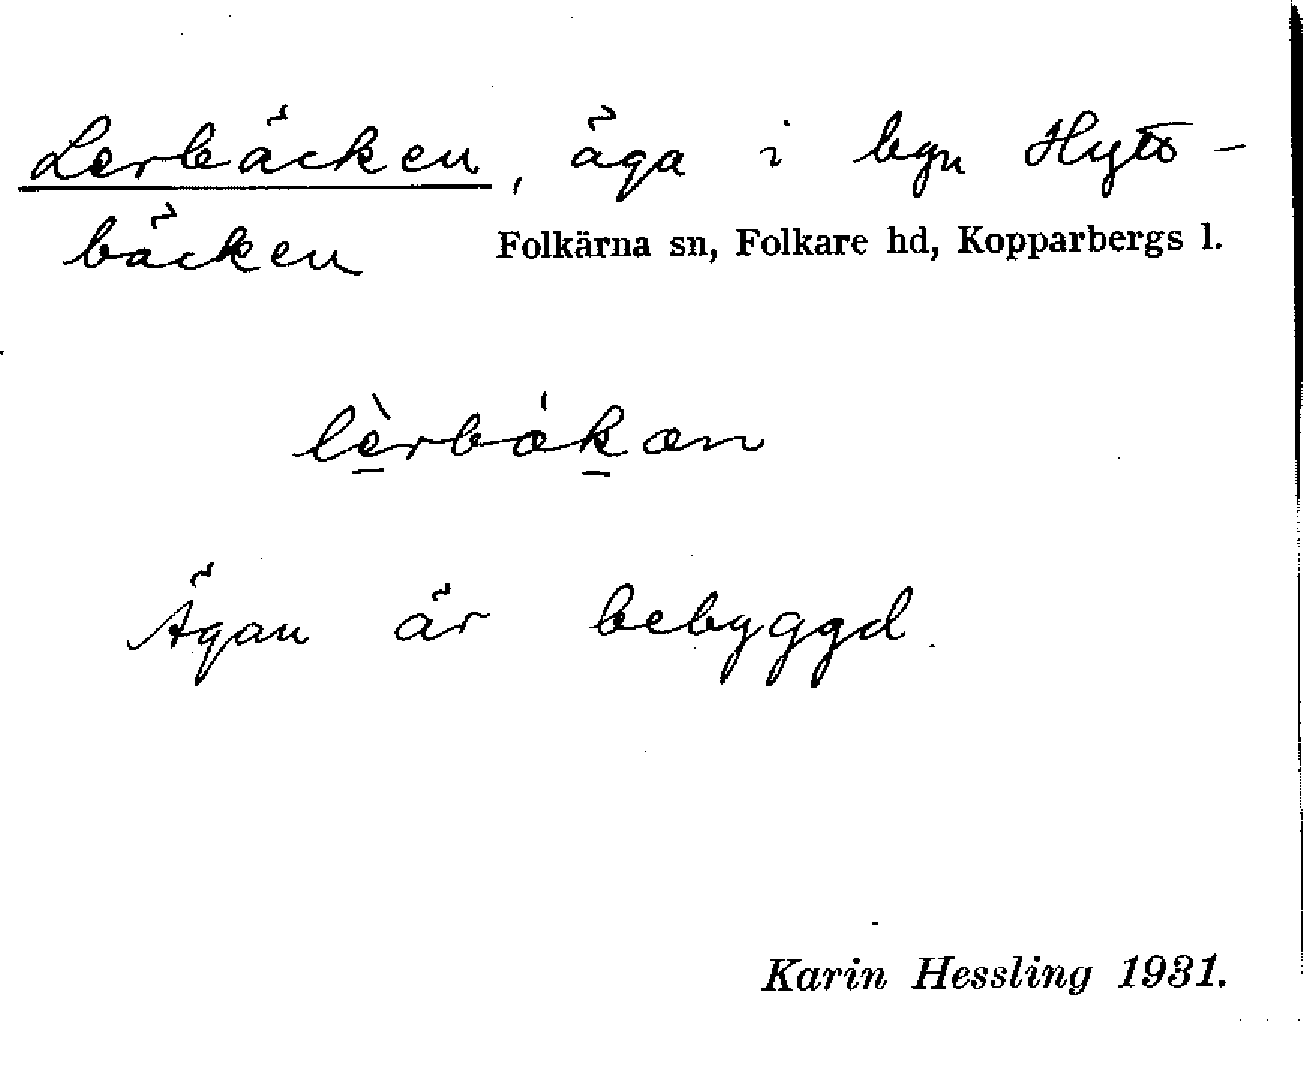 Lerbäcken, äga i byn Hytt-
bäcken Folkärna sn, Folkare hd, Kopparbergs l.
Ägan är bebyggd.
Karin Hessling 1931.